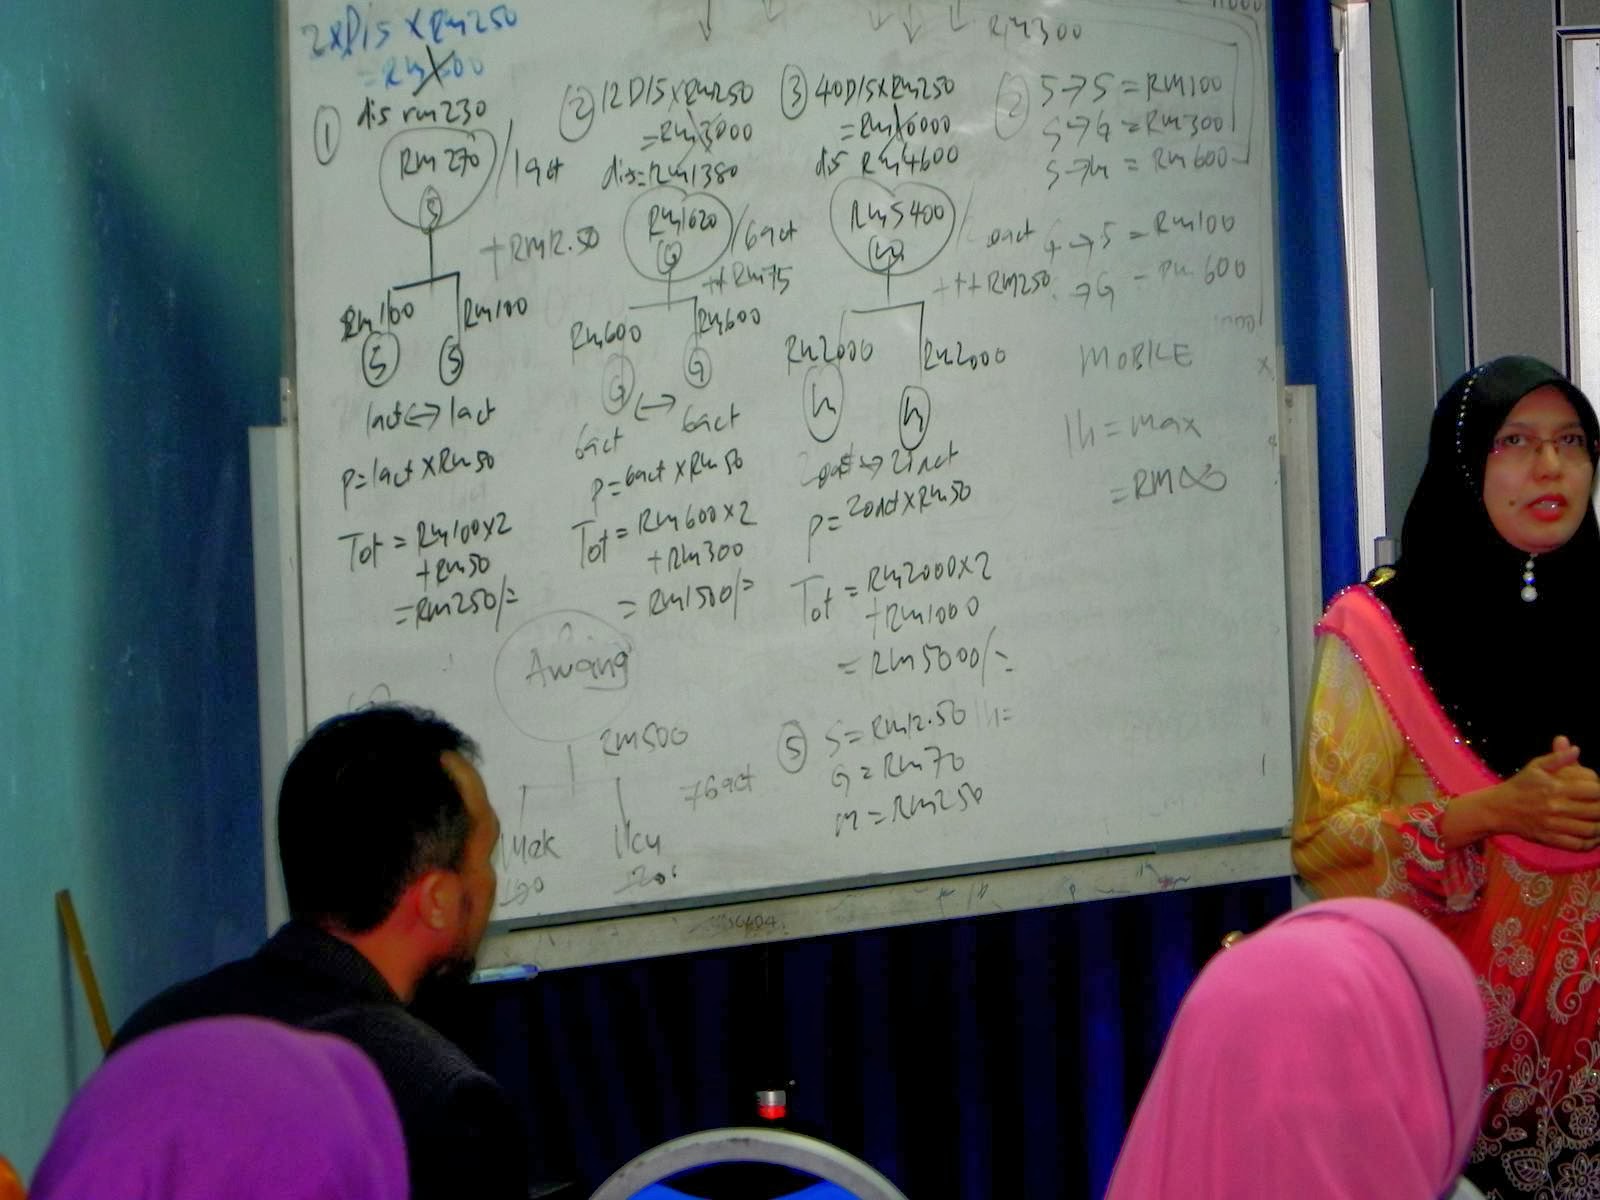 2xDis xRm250
①
dis rm230
Rm270
S
/1act
+RM12.50
Rm100
Rm100
S
S
1act↔1act
P=1act xRm50
Tot = Rm100x2
+Rm50
=Rm250/=
② 12D/S xRm250
=Rm3000
dis=Rm1380
Rm1620
G
/6act
++Rm75
Rm600
Rm600
G
G
↔
6act
6act
P=6act xRm50
Tot = Rm600x2
+Rm300
= Rm1500/=
③ 40D/SxRm250
dis Rm4600
Rm5400
+++Rm250
Rm2000
Rm2000
P=20actxRm50
Tot = Rm2000x2
+Rm1000
= Rm5000/=
Rm300
②
S→S = Rm100
S→G = Rm300
= Rm600
G→S = Rm100
→G = Rm600
MOBILE
1h = max
= RM∞
Awang
RM500
76act
⑤ S = Rm12.50
1h=
G = Rm70
m = Rm250